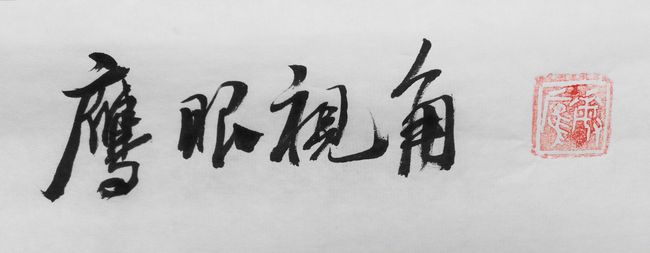 鹰眼視角